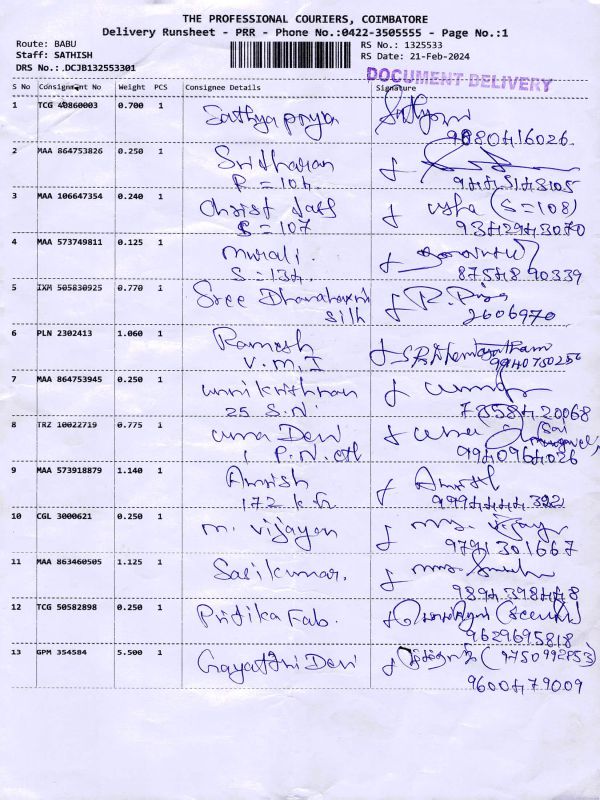 THE PROFESSIONAL COURIERS, COIMBATORE
Delivery Runsheet - PRR - Phone No.:0422-3505555 - Page No.:1
Route: BABU
Staff: SATHISH
DRS No.:.DCJB132553301
RS No.: 1325533
RS Date: 21-Feb-2024
DOCUMENT DELIVERY
S No Consignment No Weight PCS Consignee Details Signature
1 TCG 40860003 0.700 1 Sathyapriya
2 MAA 864753826 0.250 1 Sridharan
3 MAA 106647354 0.240 1 Christ Usha (S=108)
S = 107 9342943070
4 MAA 573749811 0.125 1 Murali.
S = 134. 87548 90339
5 IXM 505830925 0.770 1 Sree
Silk 2606970
6 PLN 2302413 1.060 1 Ramesh
V.M.I 9940750256
7 MAA 864753945 0.250 1 unnikrithnan
25 S.N. 7858420068
8 TRZ 10022719 0.775 1 uma Devi uma
1 P.N. 9940964026
9 MAA 573918879 1.140 1 Amrish
172
10 CGL 3000621 0.250 1 M. Vijayan M. Vijay
9791301667
11 MAA 863460505 1.125 1 Sasikumar.
9894398448
12 TCG 50582898 0.250 1 Pritika Fab.
9629695818
13 GPM 354584 5.500 1 Gayathri Devi
9600479009